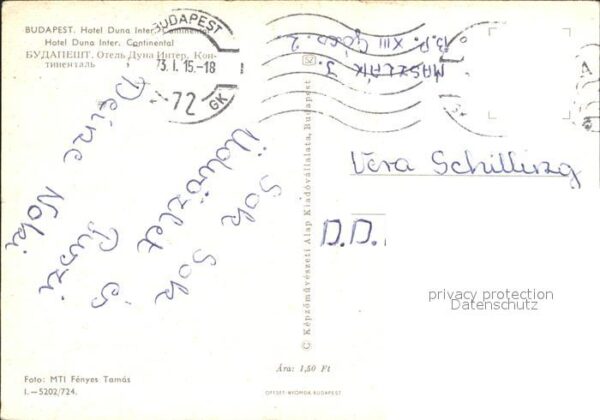 BUDAPEST. Hotel Duna Inter. Continental
Hotel Duna Inter. Continental
БУДАПЕШТ. Отель Дуна Интер. Кон-
тиненталь
BUDAPEST
73. I. 15.-18
72
GK
MASZLÁK J.
B.P. XIII
2
Sok Sok
Üdvözlet és
Puszi
Deine Noki
Véra Schilling
D.D.
© Képzőművészeti Alap Kiadóvállalata, Budapest
privacy protection
Datenschutz
Ára: 1,50 Ft
Foto: MTI Fényes Tamás
I.—5202/724.
OFFSET-NYOMDA BUDAPEST